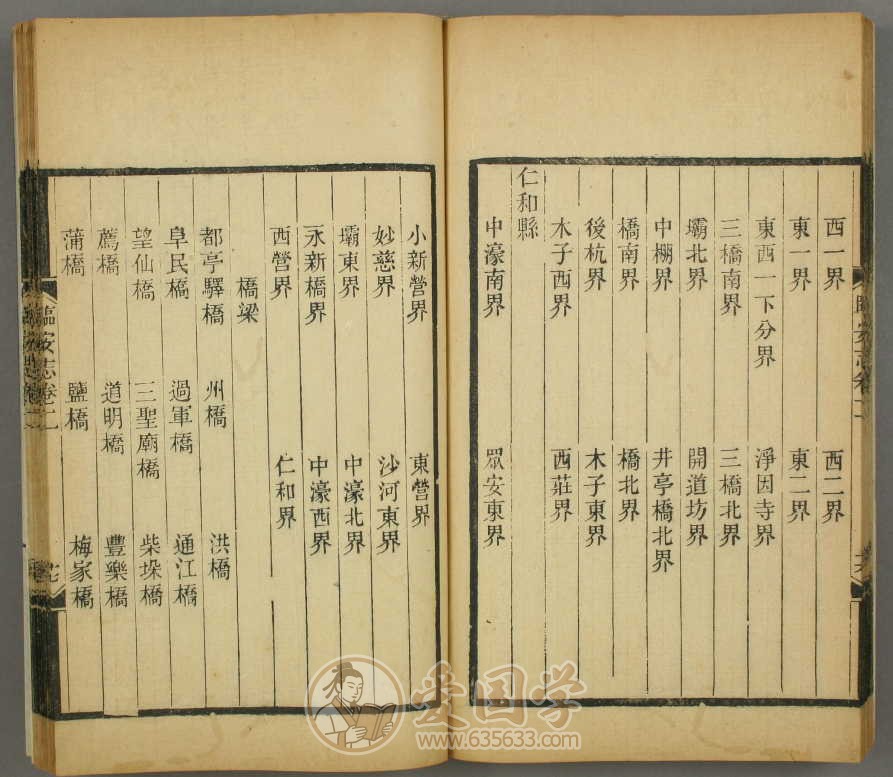 西一界 西二界
東一界 東二界
東西一下分界 淨因寺界
三橋南界 三橋北界
壩北界 開道坊界
中棚界 井亭橋北界
橋南界 橋北界
後杭界 木子東界
木子西界 西莊界
仁和縣
中濠南界 眾安東界
小新營界 東營界
妙慈界 沙河東界
壩東界 中濠北界
永新橋界 中濠西界
西營界 仁和界
橋梁
都亭驛橋 州橋 洪橋
阜民橋 過軍橋 通江橋
望仙橋 三聖廟橋 柴垛橋
薦橋 道明橋 豐樂橋
蒲橋 鹽橋 梅家橋
臨安志卷二
爱国学
www.635633.com